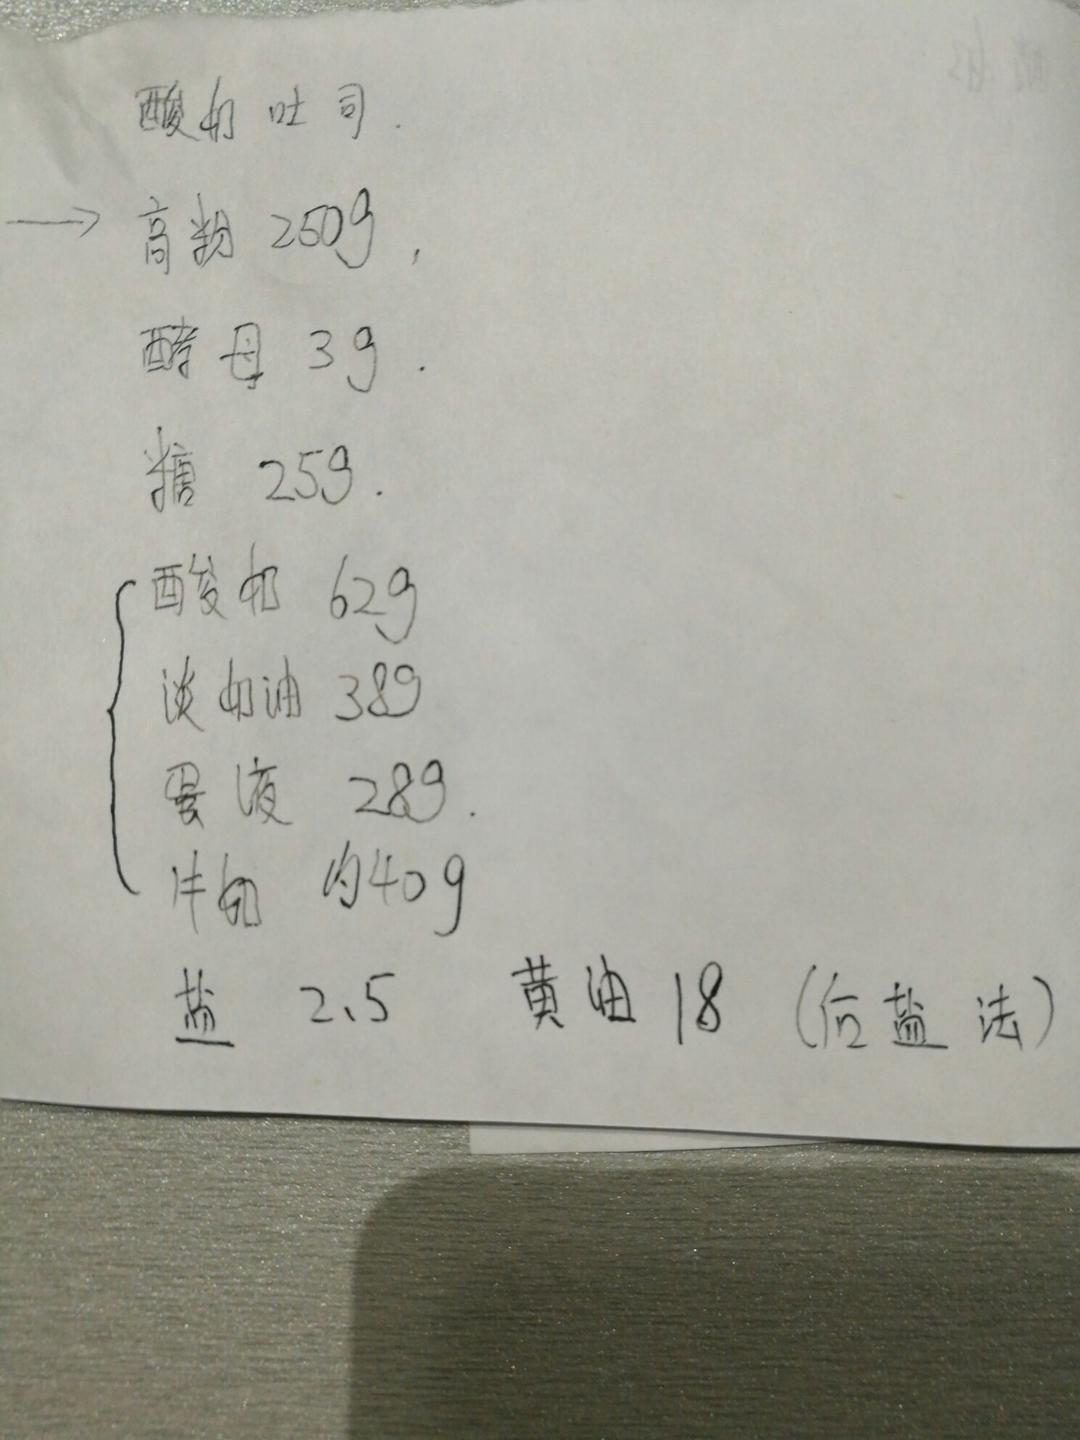 酸奶吐司.
→ 高粉 250g,
酵母 3g.
糖 25g.
酸奶 62g
淡奶油 38g
蛋液 28g.
牛奶 约40g
盐 2.5 黄油 18 (后盐法)